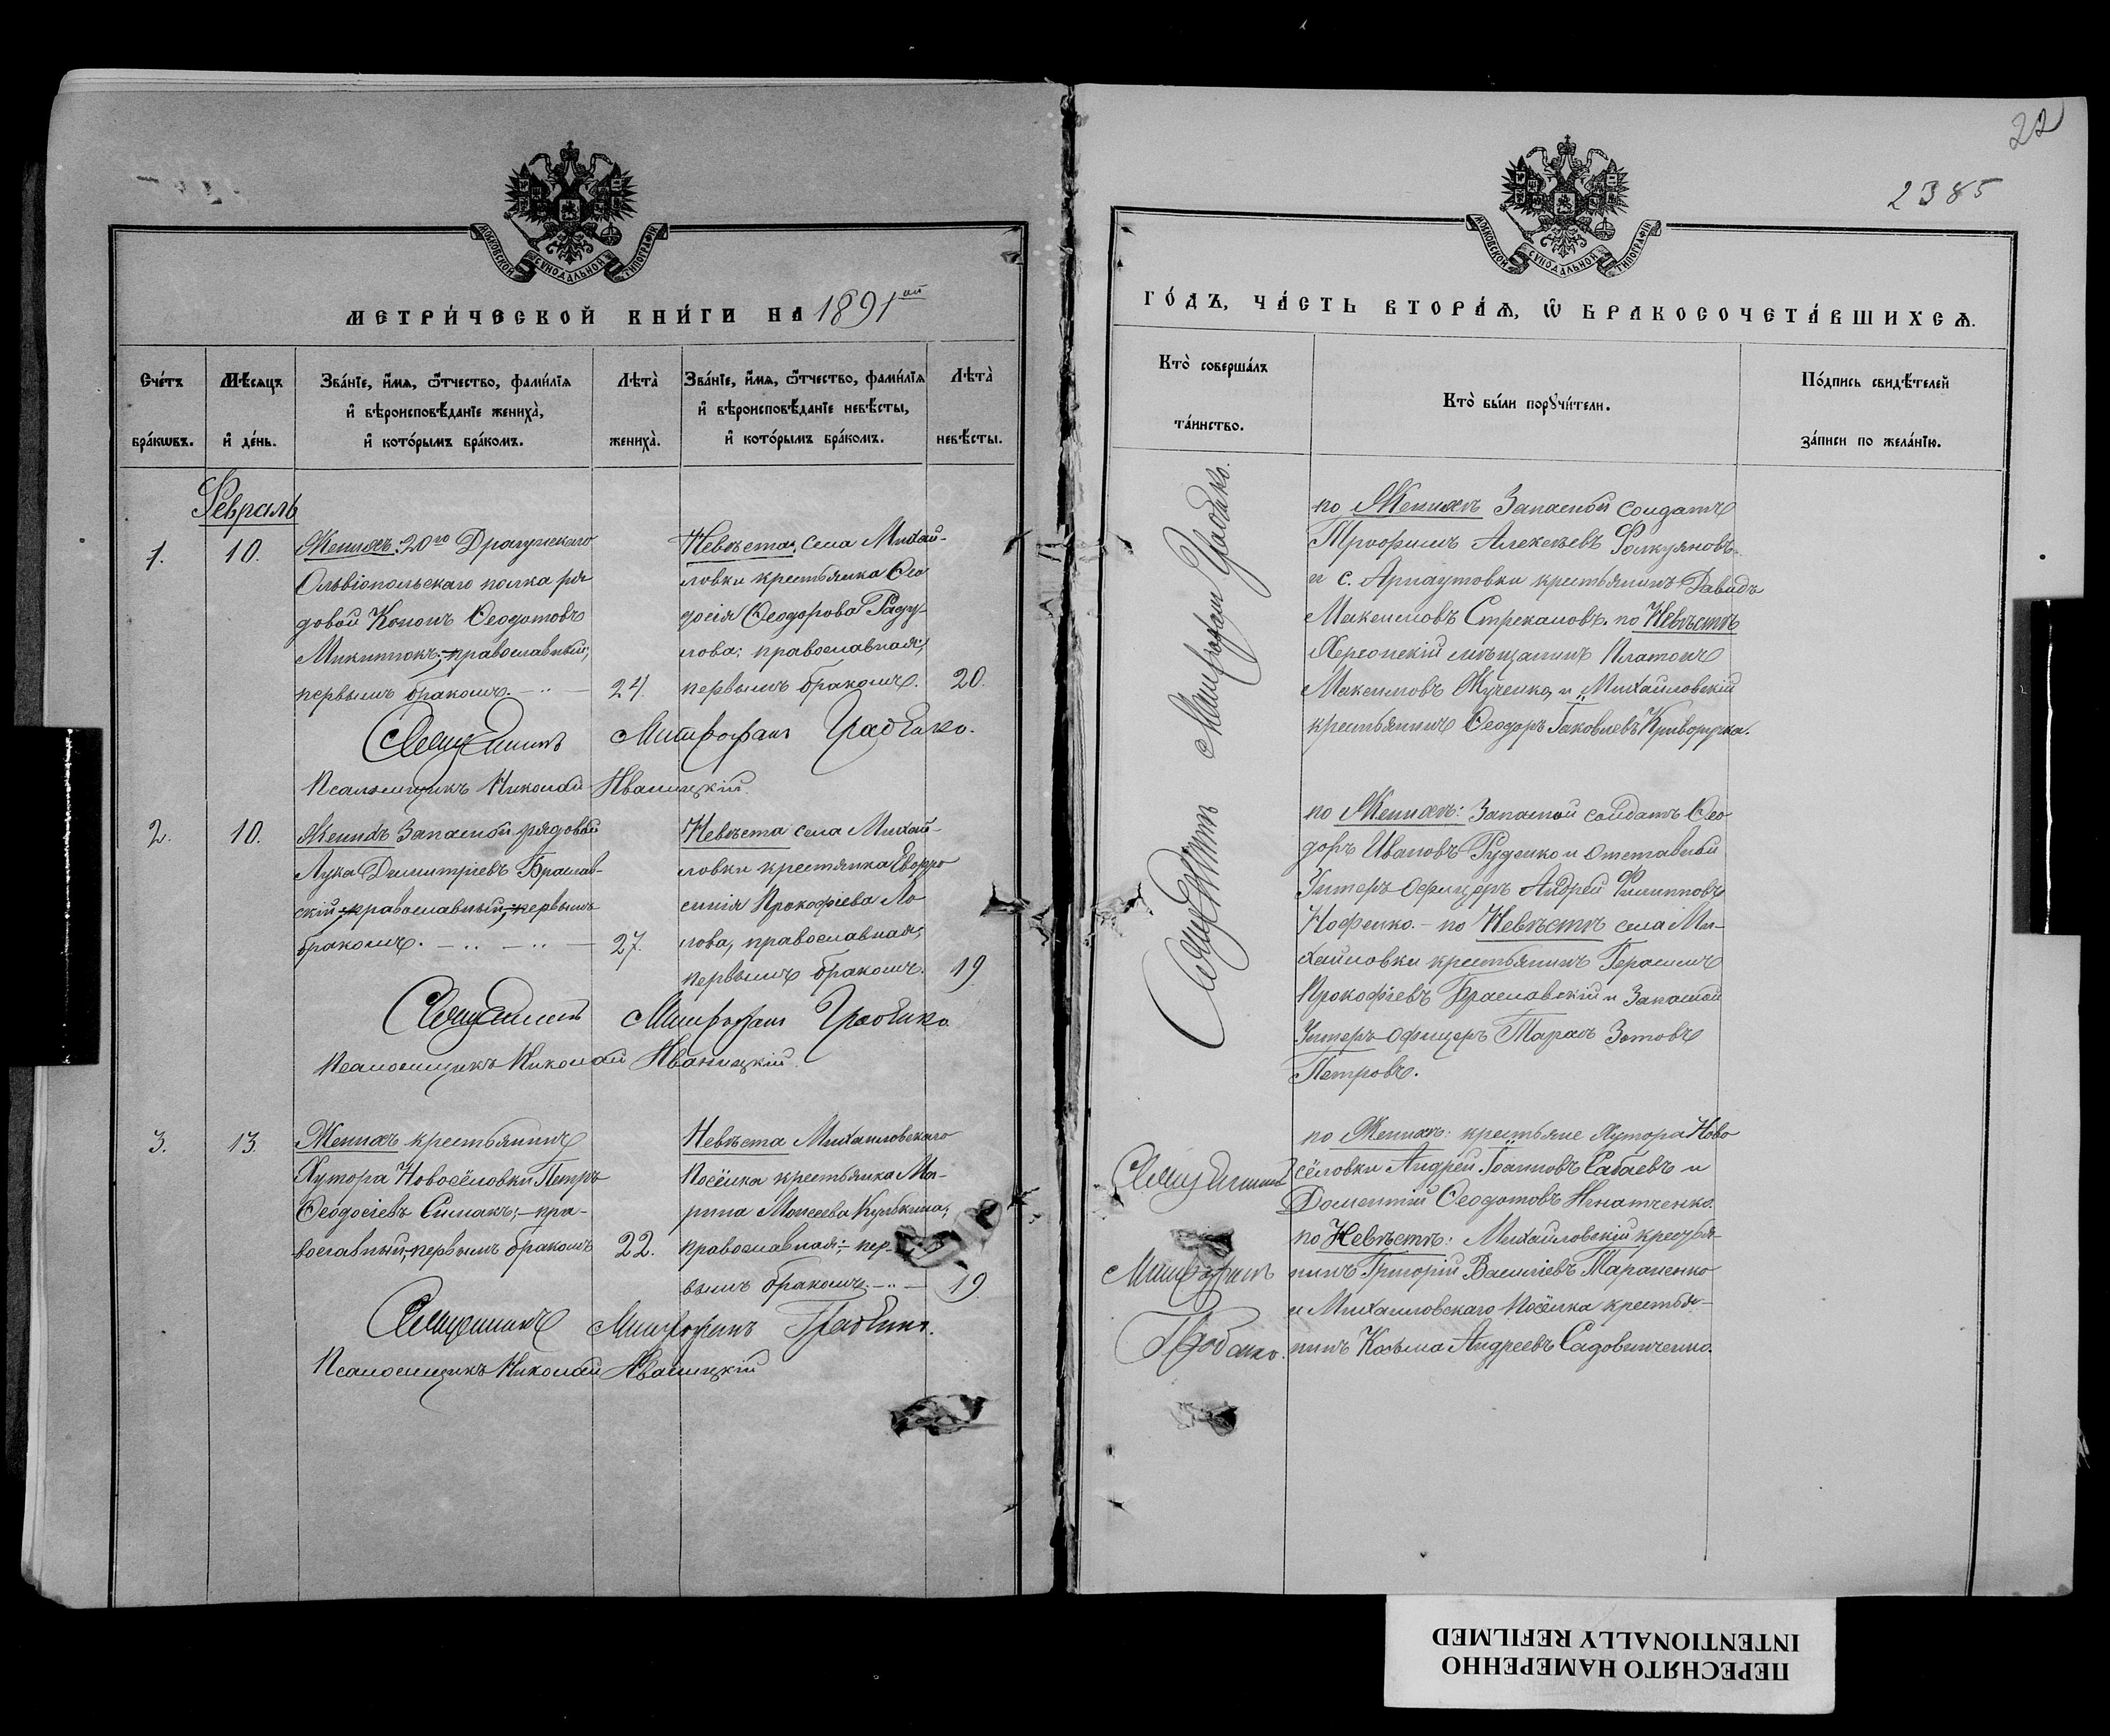 22
2385
МОСКОВСКОЙ СѴНОДАЛЬНОЙ ТИПОГРАФІИ
МЕТРИ́ЧЕСКОЙ КНИ́ГИ НА 1891ый
Сче́тъ бра́кѡвъ.
Мѣ́сяцъ и҆ де́нь.
Зва́нїе, и҆́мѧ, ѻ҆́тчество, фами́лїѧ
и҆ вѣроисповѣ́данїе женихà,
и҆ кото́рымъ бра́комъ.
Лѣ́та женихà.
Зва́нїе, и҆́мѧ, ѻ҆́тчество, фами́лїѧ
и҆ вѣроисповѣ́данїе невѣ́сты,
и҆ кото́рымъ бра́комъ.
Лѣ́та невѣ́сты.
Февраль
1.
10.
Женихъ: 20го Драгунскаго
Ольвіопольскаго полка ря
довой Кононъ Ѳеодотовъ
Микитюкъ; православный;
первымъ бракомъ.
24.
Невѣста: села Михай-
ловки крестьянка Ѳео
досія Ѳеодорова Раду
лова; православная;
первымъ бракомъ.
20.
Священникъ Митрофанъ Грабенко.
Псаломщикъ Николай Иваницкій.
2.
10.
Женихъ Запасной рядовой
Лука Димитріевъ Браслав-
скій православный, первымъ
бракомъ.
27.
Невѣста села Михай-
ловки крестянка Евфро
синія Прокофіева Ло
лова, православная;
первымъ бракомъ.
19
Священникъ Митрофанъ Грабенко
Псаломщикъ Николай Иваницкій.
3.
13.
Женихъ крестьянинъ
Хутора Новосёловки Петръ
Ѳеодосіевъ Симакъ; – пра-
вославный, первымъ бракомъ
22.
Невѣста Михаиловскаго
Посёлка крестьянка Ма-
рина Моисеева Кулькина;
православная; – пер-
вымъ бракомъ.
19
Священникъ Митрофанъ Грабенко.
Псаломщикъ Николай Иваницкій
МОСКОВСКОЙ СѴНОДАЛЬНОЙ ТИПОГРАФІИ
ГО́ДЪ, ЧА́СТЬ ВТОРА́Ѧ, Ѽ БРАКОСОЧЕТА́ВШИХСѦ.
Кто̀ соверша́лъ
та́инство.
Кто̀ бы́ли порꙋчи́тели.
По́дпись свидѣ́телей
за́писи по жела́нїю.
Священникъ Митрофанъ Грабенко.
по Женихѣ Запасной солдатъ
Трофимъ Алексѣевъ Фолкуяновъ
и с. Арнаутовки крестьянинъ Давидъ
Максимовъ Стрекаловъ. по Невѣстѣ
Херсонскій мѣщанинъ Платонъ
Максимовъ Жученко, и Михайловскій
крестьянинъ Ѳеодоръ Іаковлевъ Криворучка.
по Женихѣ: Запасной солдатъ Ѳео
доръ Ивановъ Руденко и Отставной
Унтеръ Офицеръ Андрей Филипповъ
Нофенко. – по Невѣстѣ села Ми-
хайловки крестьянинъ Герасимъ
Прокофіевъ Браславскій и Запасной
Унтеръ-Офицеръ Тарасъ Зотовъ
Петровъ.
Священникъ
Митрофанъ
Грабенко.
по Женихѣ: крестьяне Хутора Ново
сёловки Андрей Іоанновъ Сабаевъ и
Дометій Ѳеодотовъ Игнатченко.
по Невѣстѣ: Михаиловскій крестья-
нинъ Григорій Василіевъ Тараненко
и Михаиловскаго Посёлка крестья-
нинъ Козьма Андреевъ Садовниченко.
ПЕРЕСНЯТО НАМЕРЕННО
INTENTIONALLY REFILMED